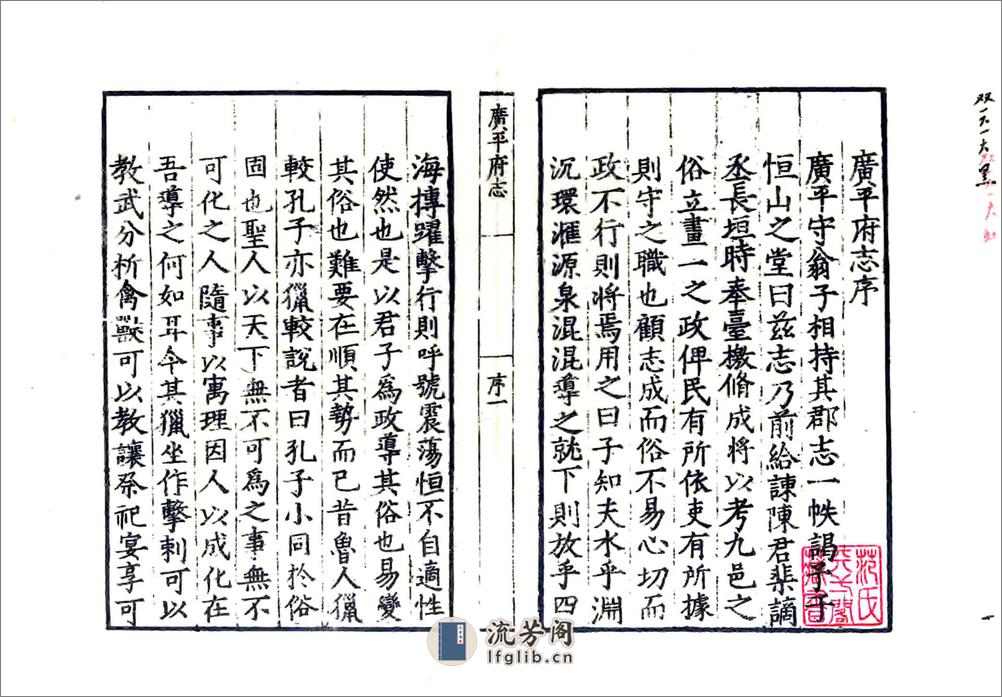 廣平府志序
廣平守翁子相持其郡志一帙謁予于
恒山之堂曰茲志乃前給諫陳君棐謫
丞長垣時奉臺檄脩成將以考九邑之
俗立畫一之政俾民有所依吏有所據
則守之職也顧志成而俗不易心切而
政不行則將焉用之曰子知夫水乎淵
沉環滙源泉混混導之就下則放乎四
廣平府志
序一
海摶躍擊行則呼號震蕩恒不自適性
使然也是以君子為政導其俗也易變
其俗也難要在順其勢而已昔魯人獵
較孔子亦獵較說者曰孔子小同於俗
固也聖人以天下無不可為之事無不
可化之人隨事以寓理因人以成化在
吾導之何如耳今其獵坐作擊刺可以
教武分析禽獸可以教讓祭祀宴享可
范氏
天一閣
藏書
流芳阁
lfglib.cn